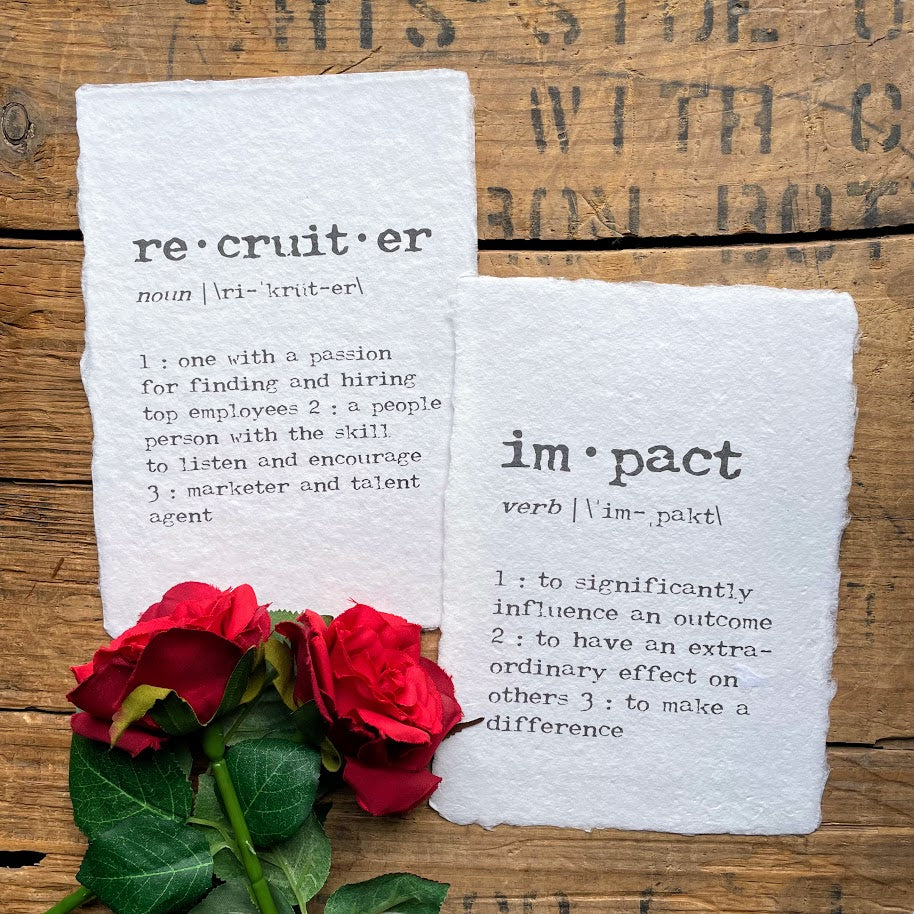 THIS SIDE U
WITH C
re·cruit·er
noun | \ri-ˈkrüt-er\
1 : one with a passion
for finding and hiring
top employees 2 : a people
person with the skill
to listen and encourage
3 : marketer and talent
agent
im·pact
verb | \ˈim-ˌpakt\
1 : to significantly
influence an outcome
2 : to have an extra-
ordinary effect on
others 3 : to make a
difference